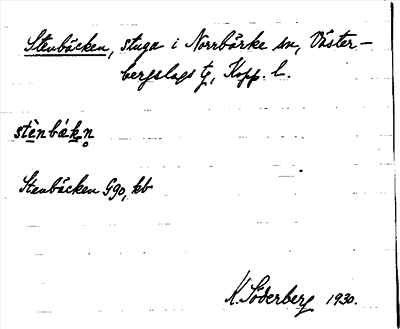 Stenbäcken, stuga i Norrbärke sn, Väster-
bergslags tg, Kopp. l.
stènbäkn̥
Stenbäcken G90, kb
K. Söderberg 1930.